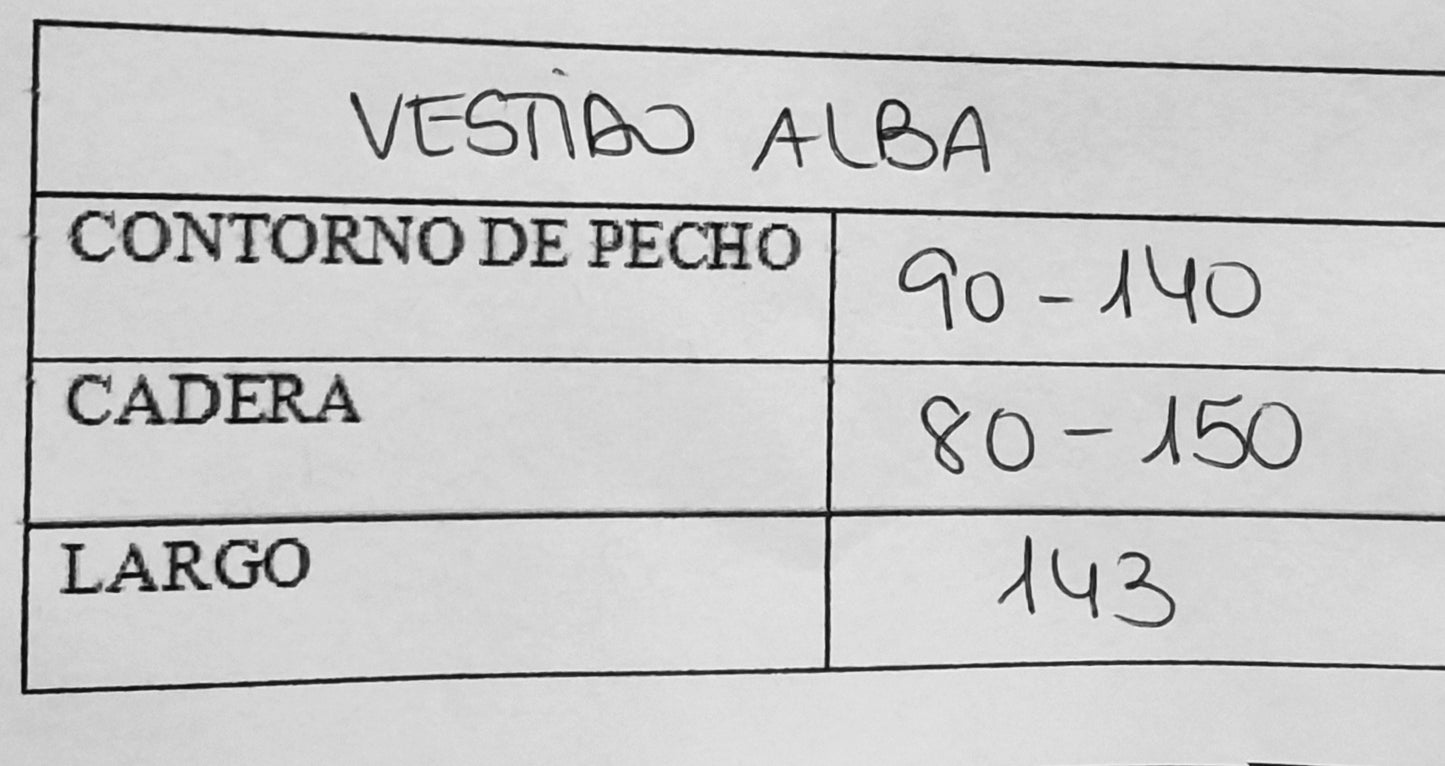 VESTIDO ALBA
CONTORNO DE PECHO 90 - 140
CADERA 80 - 150
LARGO 143